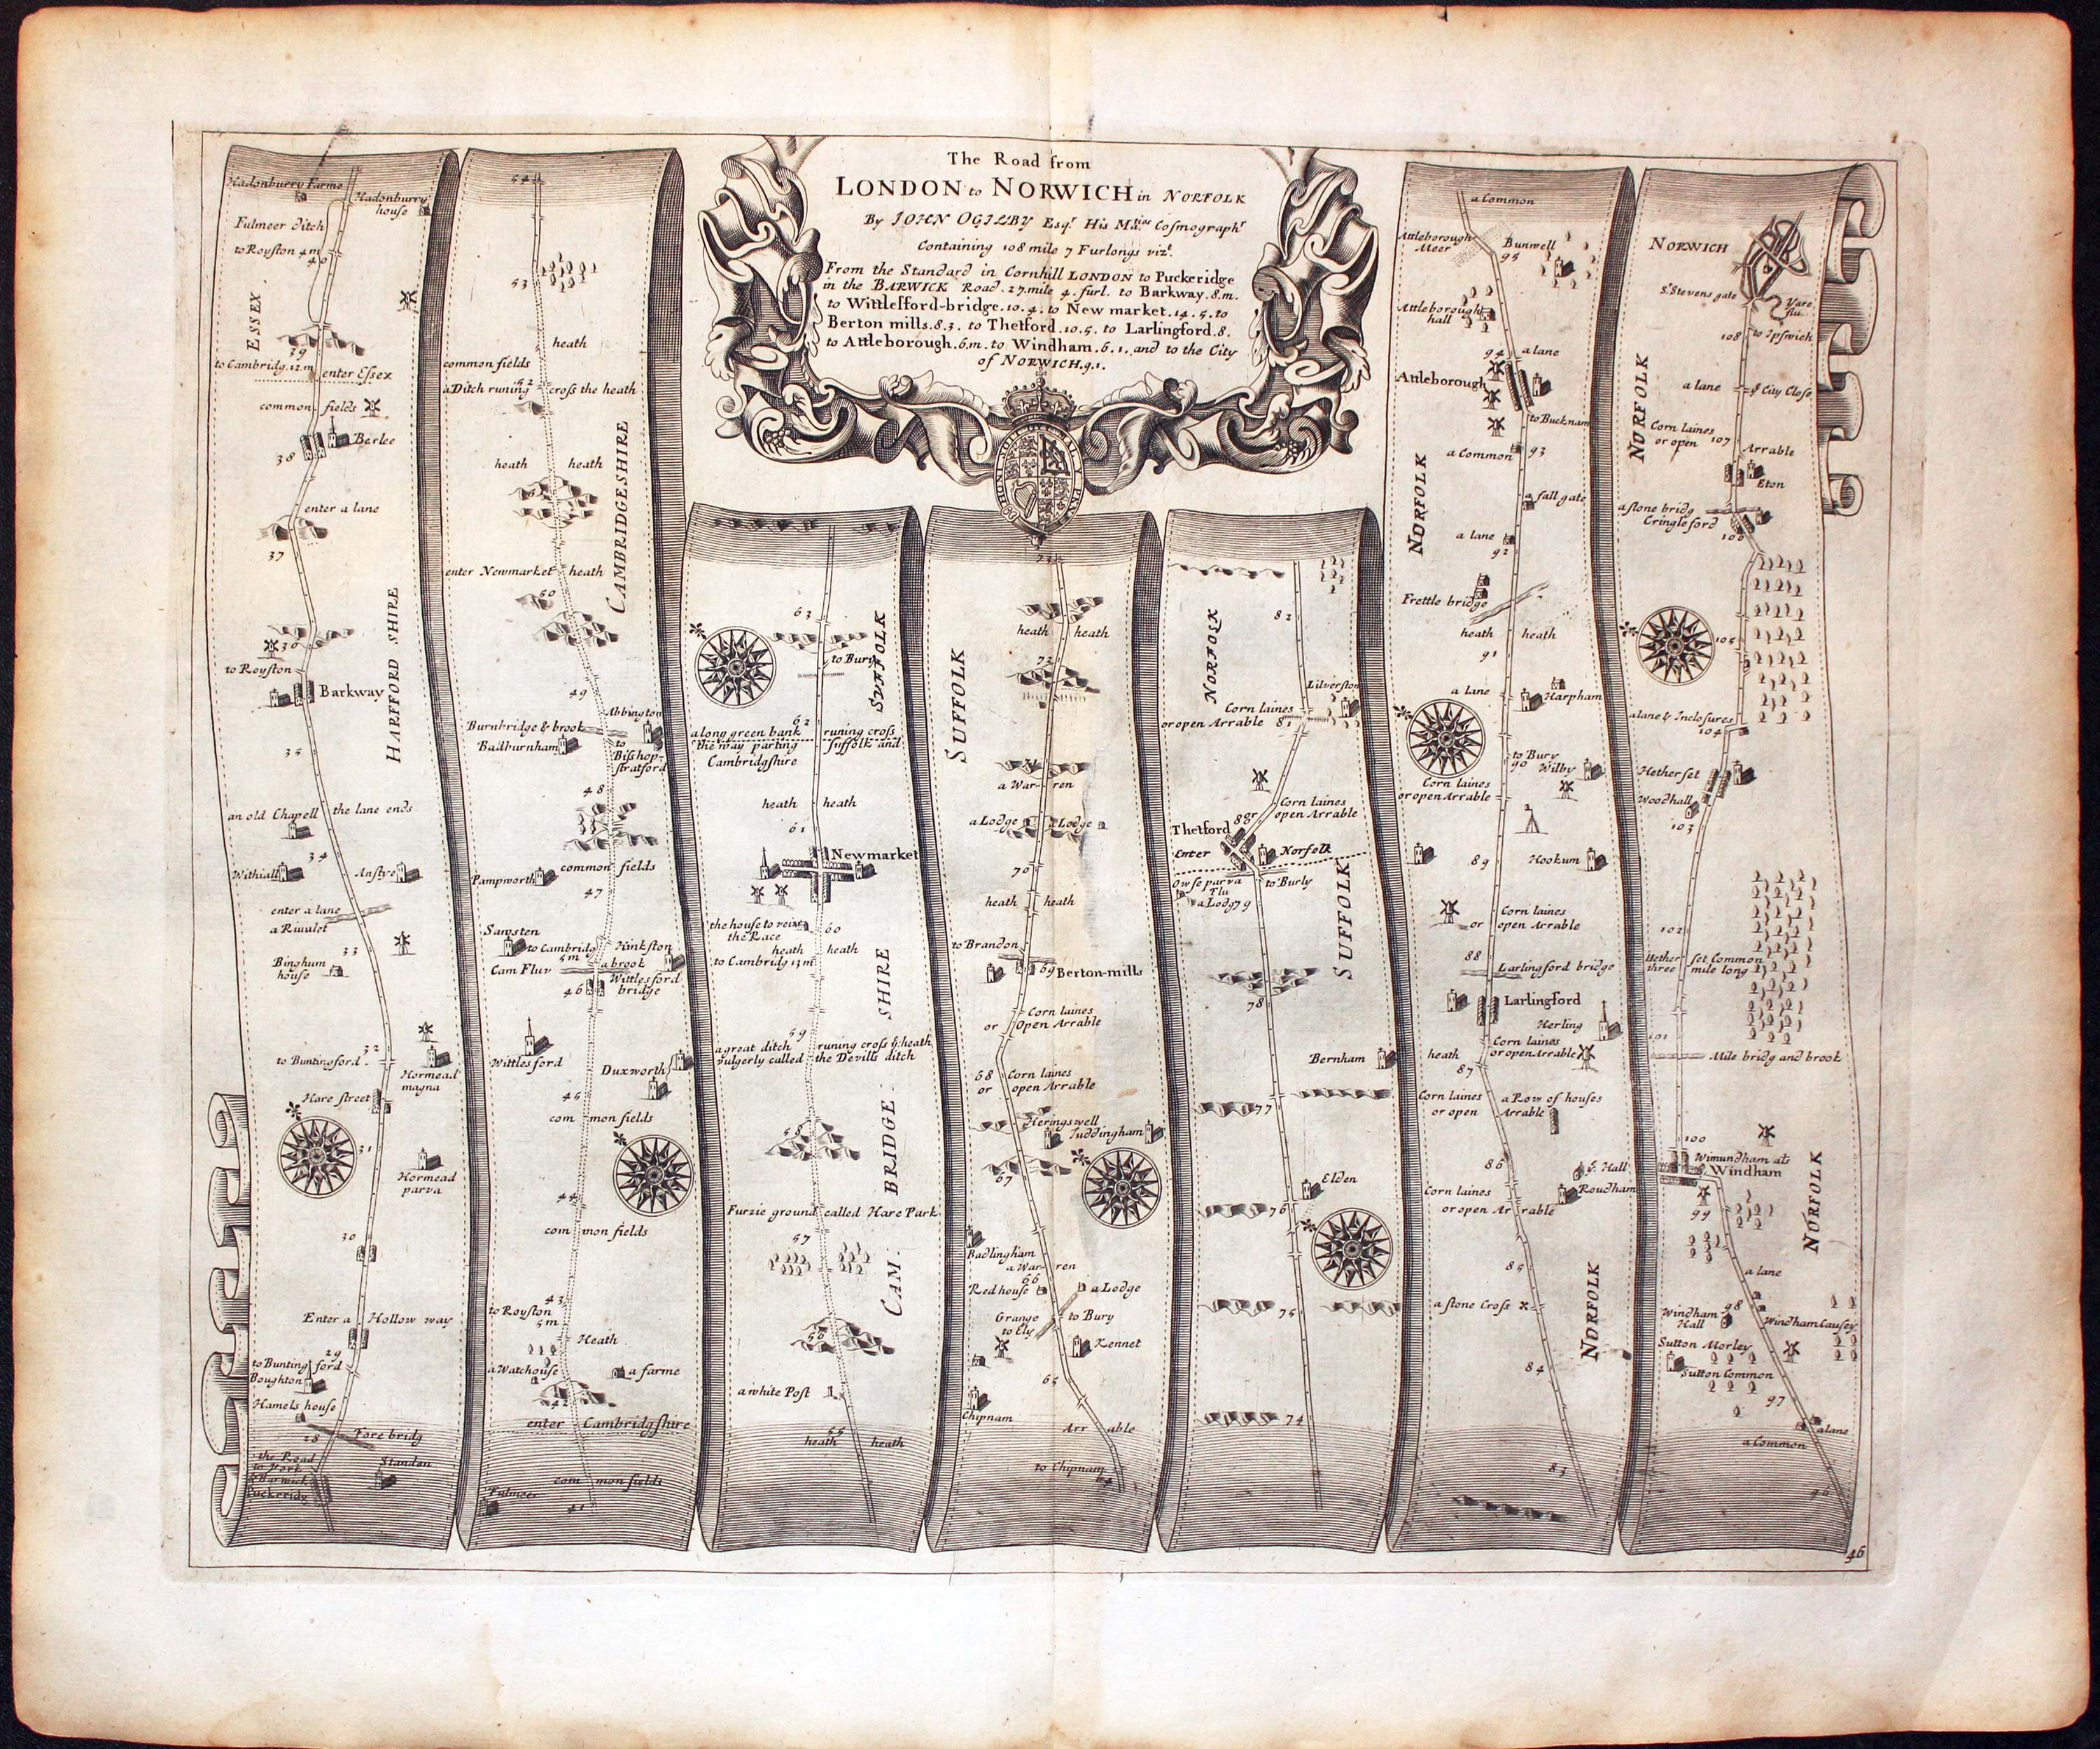 The Road from
LONDON to NORWICH in NORFOLK
By IOHN OGILBY Esqr. His Maties Cosmographr
Containing 108 mile 7 Furlongs vizt.
From the Standard in Cornhill LONDON to Puckeridge
in the BARWICK Road. 27. mile 4. furl. to Barkway. 8. m.
to Wittlesford-bridge. 10. 4. to New market. 14. 5. to
Berton mills. 8. 3. to Thetford. 10. 5. to Larlingford. 8.
to Attleborough. 6. m. to Windham. 6. 1. and to the City
of NORWICH. 9. 1.
HONI SOIT QUI MAL Y PENSE
Hadonburry Farme
Hadonburry
house
Fulmeer ditch
to Royston 4 m
40
ESSEX
39
to Cambridg. 12. m
enter Essex
common fields
Berlee
38
enter a lane
37
36
to Royston
Barkway
HARFFORD SHIRE
35
an old Chapell
the lane ends
34
Withiall
Anstye
enter a lane
a Rivulet
33
Binghum
house
32
to Buntingford
Hormead
magna
Hare street
31
Hormead
parva
30
Enter a Hollow way
29
to Bunting ford
Boughton
Hamels house
28
Fore bridg
the Road
to York
& Barwick
Puckeridg
Standon
54
53
heath
common fields
a Ditch runing 52 cross the heath
CAMBRIDGESHIRE
heath heath
enter Newmarket heath
50
49
Abbington
Burnbridge & brook
Badburnham
to
Bishop-
stratford
48
common fields
Pampworth
47
Sawsten
to Cambridg
5 m
Hinkston
Cam Fluv
a brook
46
Wittlesford
bridge
Wittlesford
Duxworth
45
com mon fields
44
com mon fields
43
to Royston
5 m
Heath
a Watchouse
a farme
42
enter Cambridgshire
com mon fields
Fulmeer
41
63
to Bury
SUFFOLK
62
along green bank runing cross
the way parting Suffolk and
Cambridgshire
heath heath
61
Newmarket
the house to veiw
the Race
60
heath heath
to Cambridg 13 m
59
a great ditch runing cross ye heath
vulgerly called the Devills ditch
CAM: BRIDGE: SHIRE
58
Furzie ground called Hare Park
57
56
a white Post
55
heath heath
73
heath heath
72
SUFFOLK
a War- ren
a Lodge Lodge
70
heath heath
to Brandon
69
Berton-mills
Corn laines
or Open Arrable
68
Corn laines
or open Arrable
Heringswell
Tuddingham
67
Badlingham
a War- ren
66
Redhouse
a Lodge
Grange
to Ely
to Bury
Kennet
65
Chipnam
Arr able
to Chipnam
82
NORFOLK
Lilverston
Corn laines
or open Arrable 81
Corn laines
80 or open Arrable
Thetford
Enter Norfolk
Owse parva
Flu
to Burly
a Lodg 79
SUFFOLK
78
Bernham
77
Elden
76
75
74
a Common
Attleborough
Meer
Bunwell
95
Attleborough
hall
94
a lane
Attleborough
to Bucknam
a Common
93
NORFOLK
a fall gate
a lane
92
Frettle bridge
heath heath
91
a lane
Harpham
to Bury
90
Wilby
Corn laines
or open Arrable
89
Hookum
Corn laines
or open Arrable
88
Larlingford bridge
Larlingford
Herling
Corn laines
or open Arrable
heath
87
Corn laines
or open Arrable
a Row of houses
86
ye Hall
Roudham
Corn laines
or open Ar rable
85
a stone Cross
NORFOLK
84
83
NORWICH
St. Stevens gate
Yare
flu.
108
to Ipswich
NORFOLK
a lane
ye City Close
Corn laines
or open
107
Arrable
Eton
a stone bridg
Cringleford
106
105
a lane & Inclosures
104
Hetherset
Woodhall
103
102
Hether set Common
three mile long
101
Mile bridg and brook
100
Wimundham als
Windham
99
NORFOLK
a lane
98
Windham
Hall
Windham Causey
Sutton Morley
Sutton Common
97
a lane
a Common
96
46